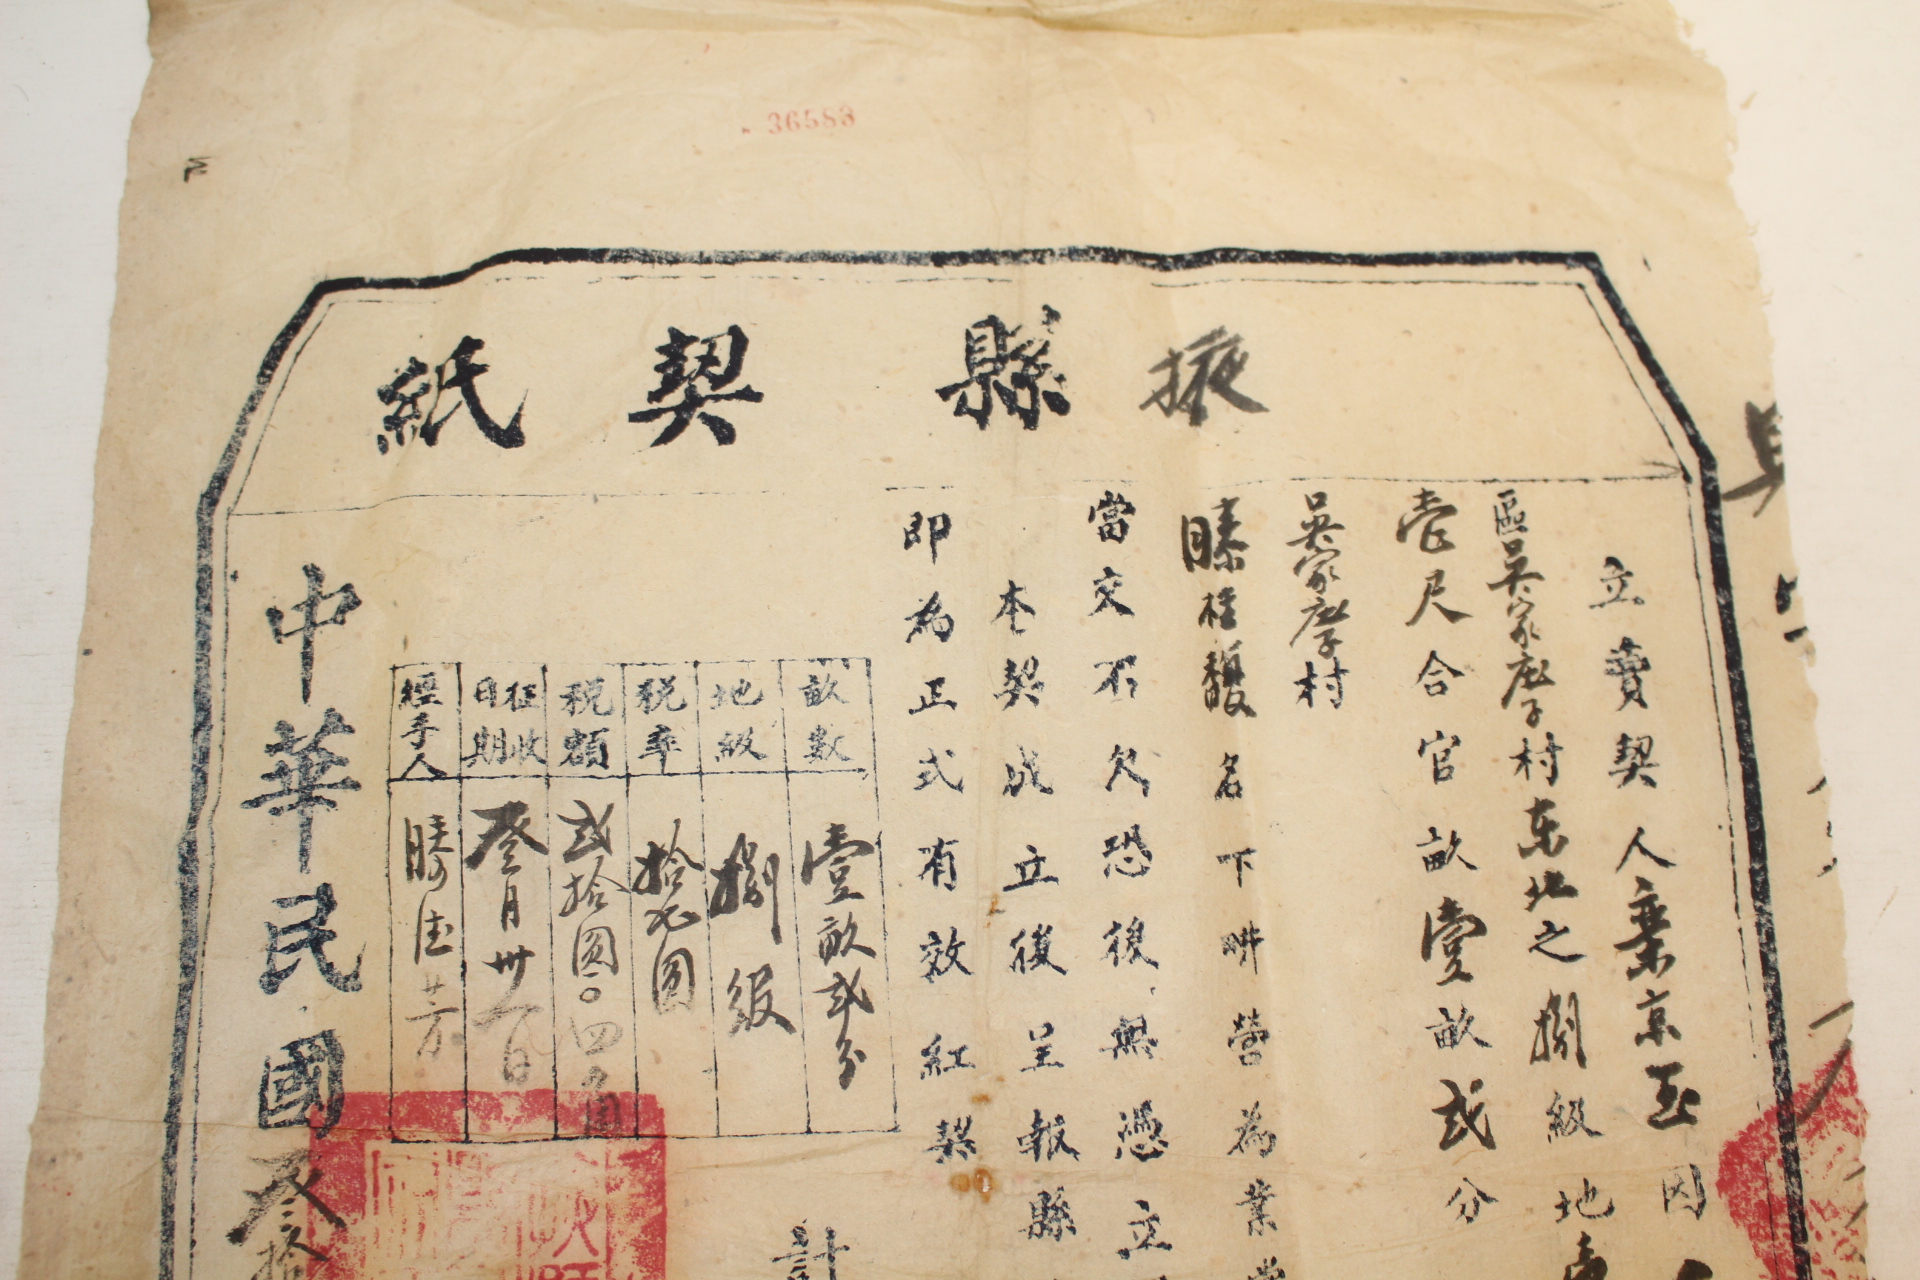 36583
掖縣契紙
立賣契人 京玉因
區吳家庄子村東北之捌級地
壹尺合官畝壹畝貳分
吳家庄子村
滕桂馥名下畊營為業
當交不欠恐後無憑立
本契成立後呈報縣
即為正式有效紅契
計
畝數 壹畝貳分
地級 捌級
稅率 拾 圓
稅額 貳拾圓〇四角
征收日期 叄月卅 日
經手人 滕 芳
中華民國叄拾